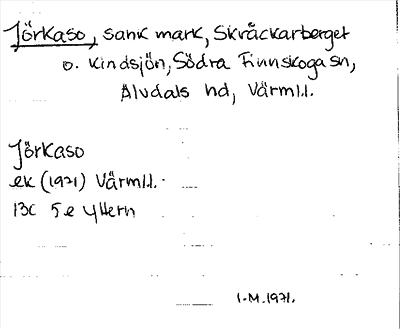 Jörkaso, sank mark, Skråckarberget
o. Kindsjön, Södra Finnskoga sn,
Älvdals hd, Värml.
Jörkaso
ek (1971) Värml.
13C 5e Yttern
I-M. 1971.